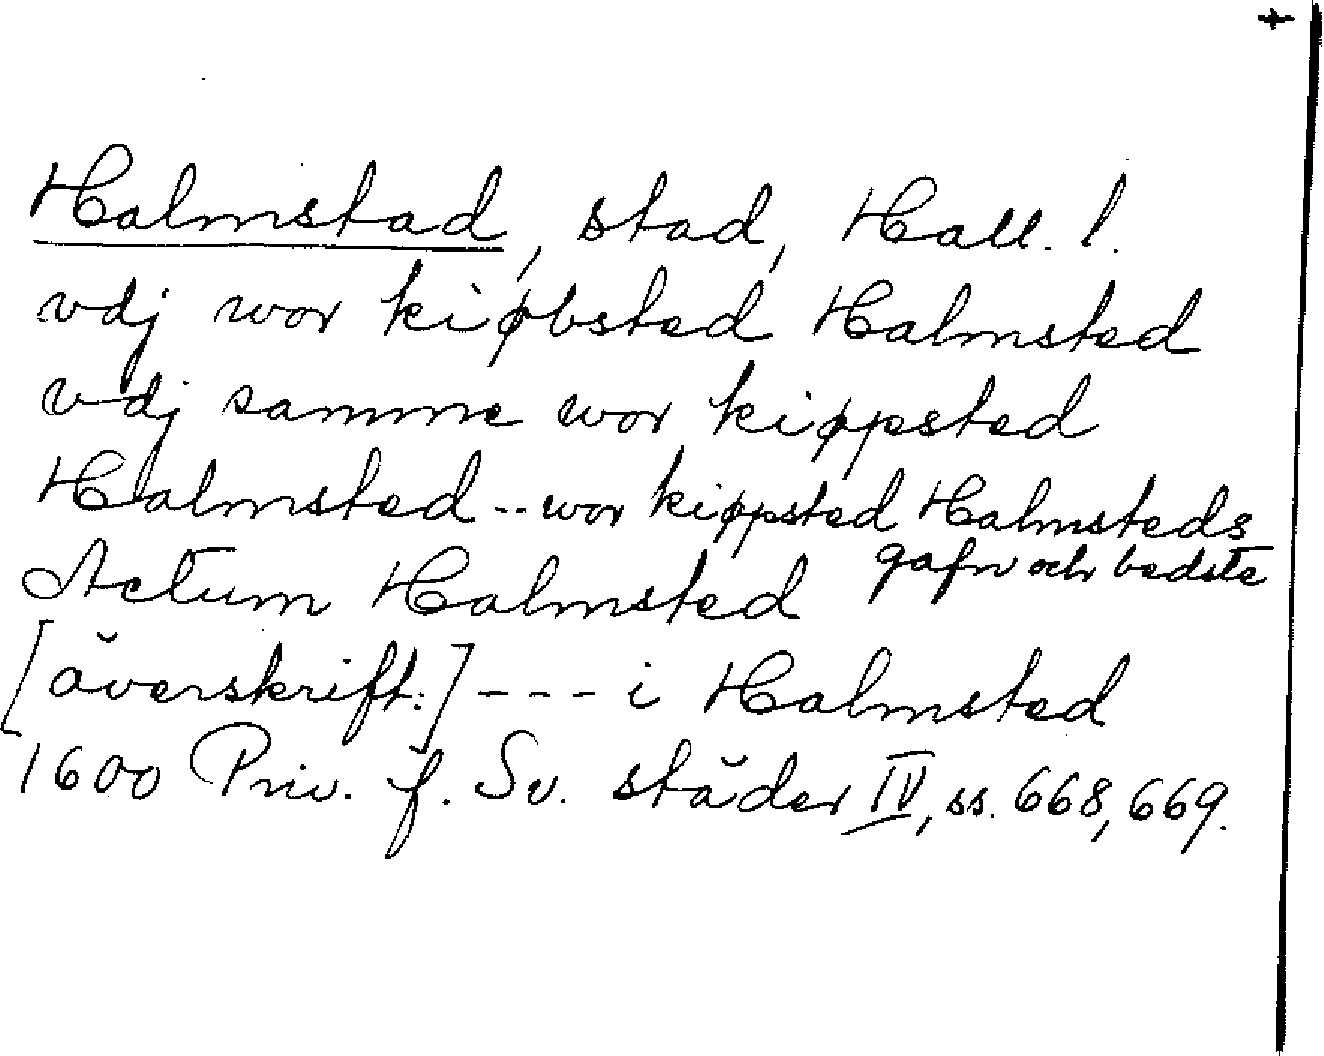 Halmstad, stad, Hall. l.
vdj wor kiøbsted Halmsted
vdj samme wor kiøpsted
Halmsted -- wor kiøpsted Halmsteds
gafn och bedste
Actum Halmsted
[överskrift:] --- i Halmsted
1600 Priv. f. Sv. städer IV, ss. 668, 669.